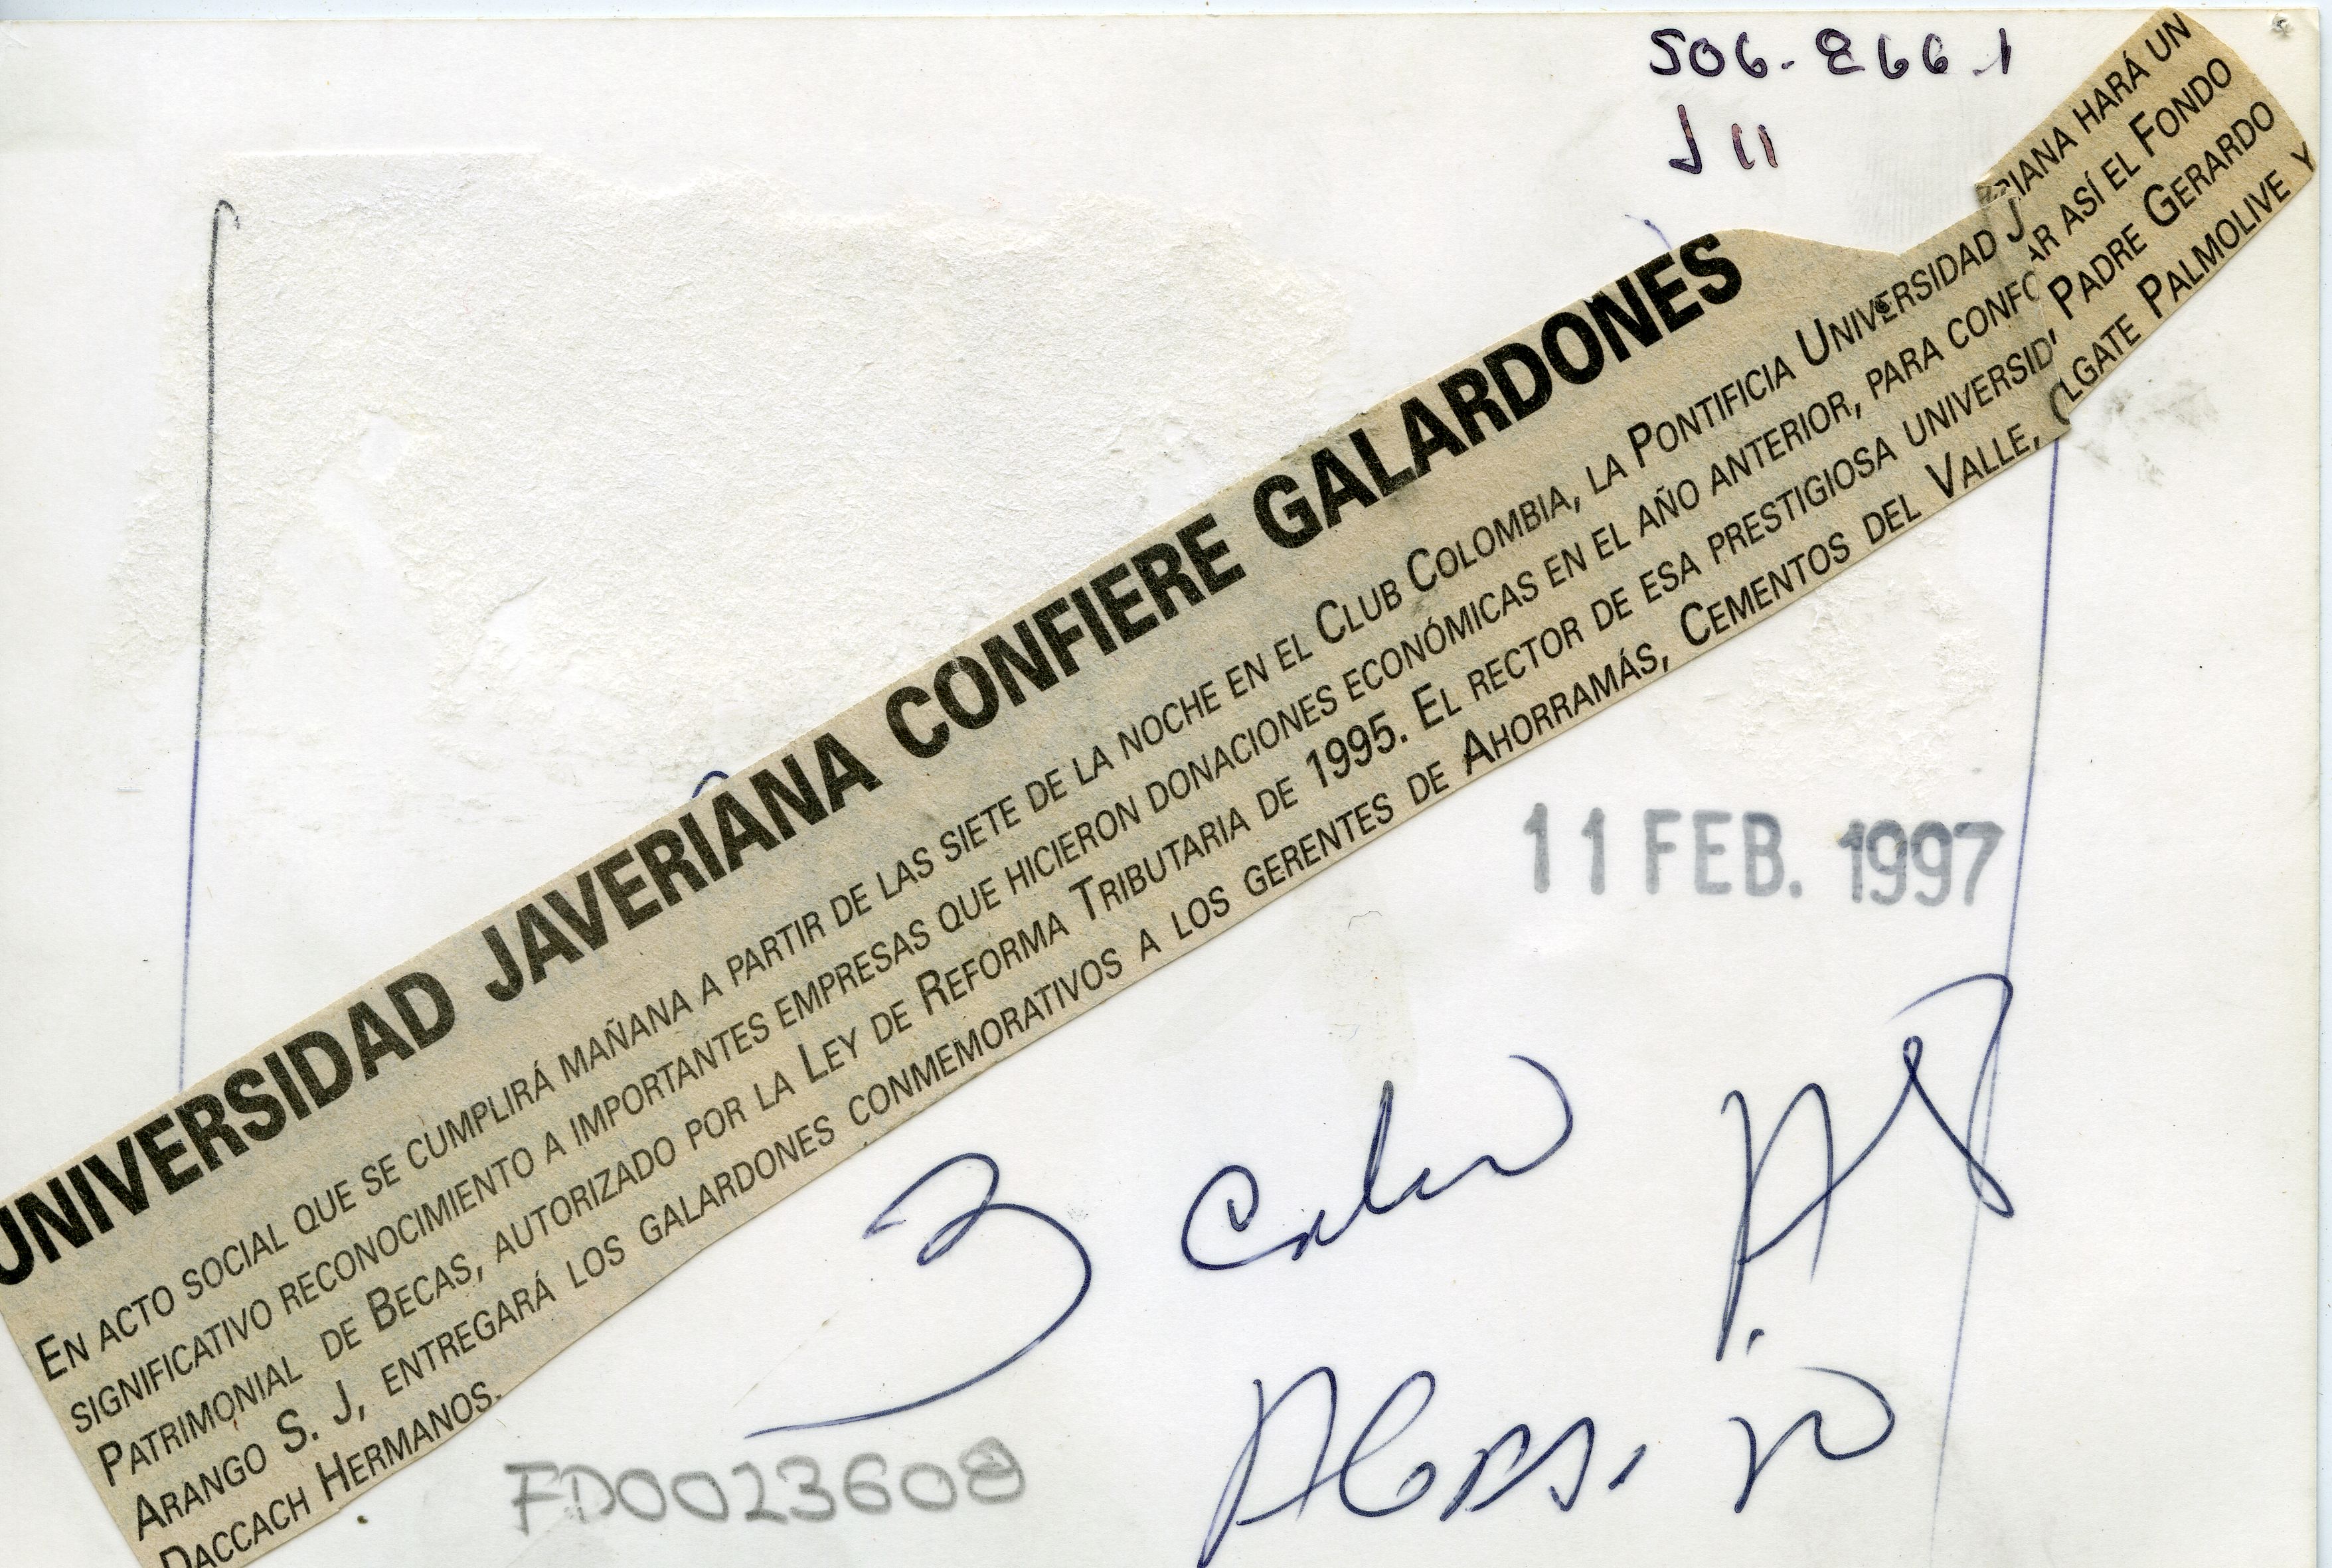 506-866.1
J 11
UNIVERSIDAD JAVERIANA CONFIERE GALARDONES
EN ACTO SOCIAL QUE SE CUMPLIRÁ MAÑANA A PARTIR DE LAS SIETE DE LA NOCHE EN EL CLUB COLOMBIA, LA PONTIFICIA UNIVERSIDAD J RIANA HARÁ UN
SIGNIFICATIVO RECONOCIMIENTO A IMPORTANTES EMPRESAS QUE HICIERON DONACIONES ECONÓMICAS EN EL AÑO ANTERIOR, PARA CONFO AR ASÍ EL FONDO
PATRIMONIAL DE BECAS, AUTORIZADO POR LA LEY DE REFORMA TRIBUTARIA DE 1995. EL RECTOR DE ESA PRESTIGIOSA UNIVERSID, PADRE GERARDO
ARANGO S. J, ENTREGARÁ LOS GALARDONES CONMEMORATIVOS A LOS GERENTES DE AHORRAMÁS, CEMENTOS DEL VALLE, COLGATE PALMOLIVE Y
DACCACH HERMANOS.
11 FEB. 1997
3
FD0023608